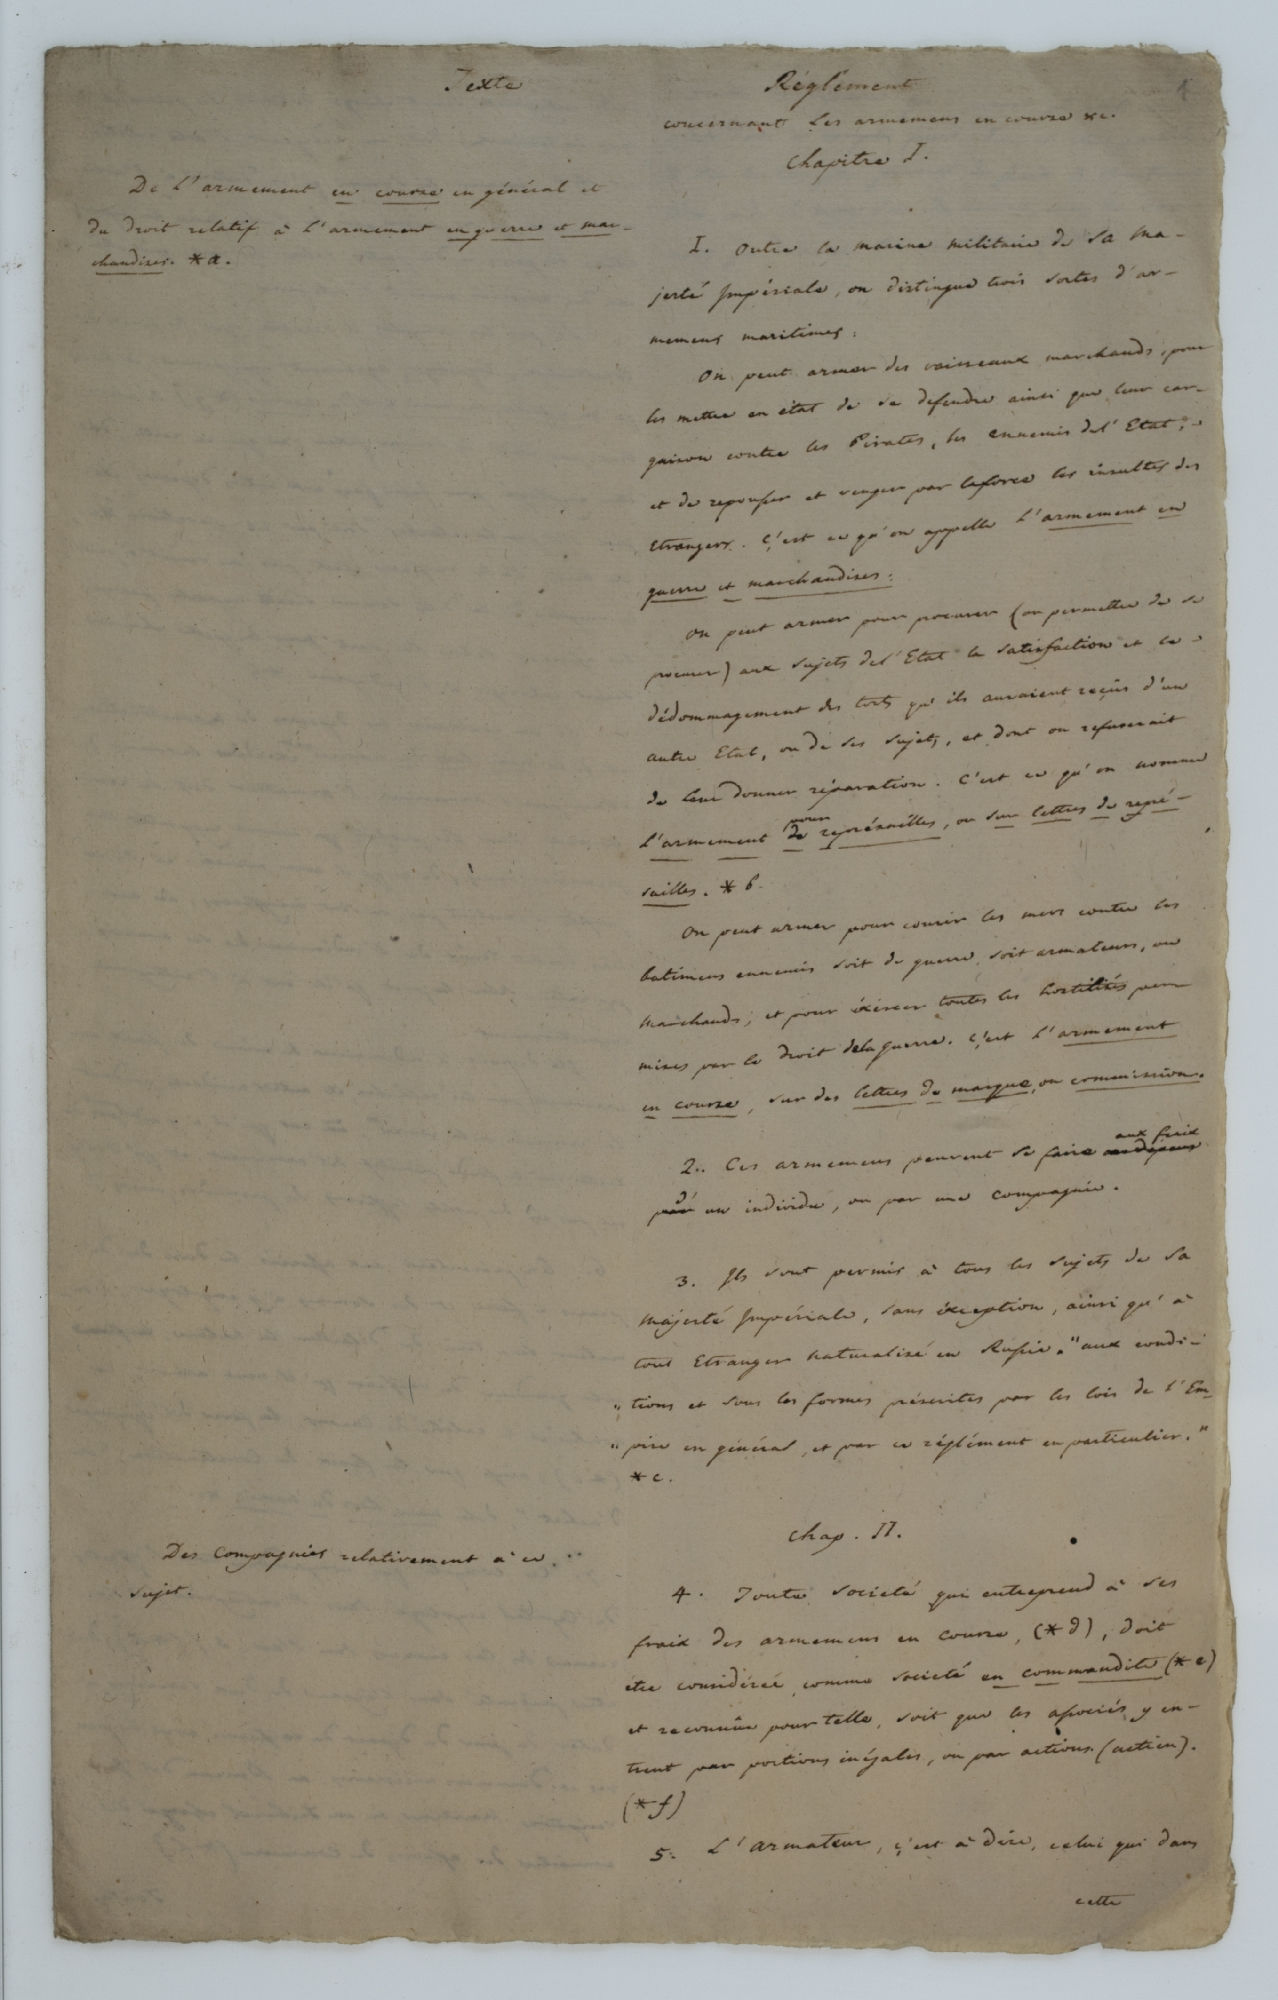 Texte
Réglement
1
concernant les armemens en course &c.
Chapitre I.
De l'armement en course en général et
du droit relatif à l'armement en guerre et mar-
chandises. *a.
I. Outre la marine militaire de Sa Ma-
jesté Impériale, on distingue trois sortes d'ar-
memens maritimes:
On peut armer des vaisseaux marchands, pour
les mettre en état de se defendre ainsi que leur car-
gaison contre les Pirates, les ennemis de l'Etat;
et de repousser et venger par la force les insultes des
Etrangers. C'est ce qu'on appelle l'armement en
guerre et marchandises:
On peut armer pour procurer (ou permettre de se
procurer) aux sujets de l'Etat la satisfaction et le
dédommagement des torts qu'ils auraient reçûs d'un
autre Etat, ou de ses sujets, et dont on refuserait
de leur donner réparation. C'est ce qu'on nomme
pour
l'armement de représailles, ou sur lettres de repré-
sailles. *b.
On peut armer pour courir les mers contre les
batimens ennemis soit de guerre, soit armateurs, ou
marchands; et pour éxercer toutes les hostilités per-
mises par le droit de la guerre. C'est l'armement
en course, sur des lettres de marque, ou commission.
aux fraix
2. Ces armemens peuvent se faire aux dépens
d'
par un individu, ou par une compagnie.
3. Ils sont permis à tous les sujets de Sa
Majesté Impériale, sans éxception, ainsi qu'à
tout Etranger naturalisé en Russie. "aux condi-
"tions et sous les formes préscrites par les lois de l'Em-
"pire en général, et par ce réglément en particulier."
*c.
Chap. II.
Des Compagnies relativement à ce
sujet.
4. Toute société qui entreprend à ses
fraix des armemens en course, (*d), doit
être considérée comme société en commandite (*e)
et reconnûe pour telle, soit que les associés y en-
trent par portions inégales, ou par actions (actien).
(*f)
5. L'armateur, c'est à dire, celui qui dans
cette